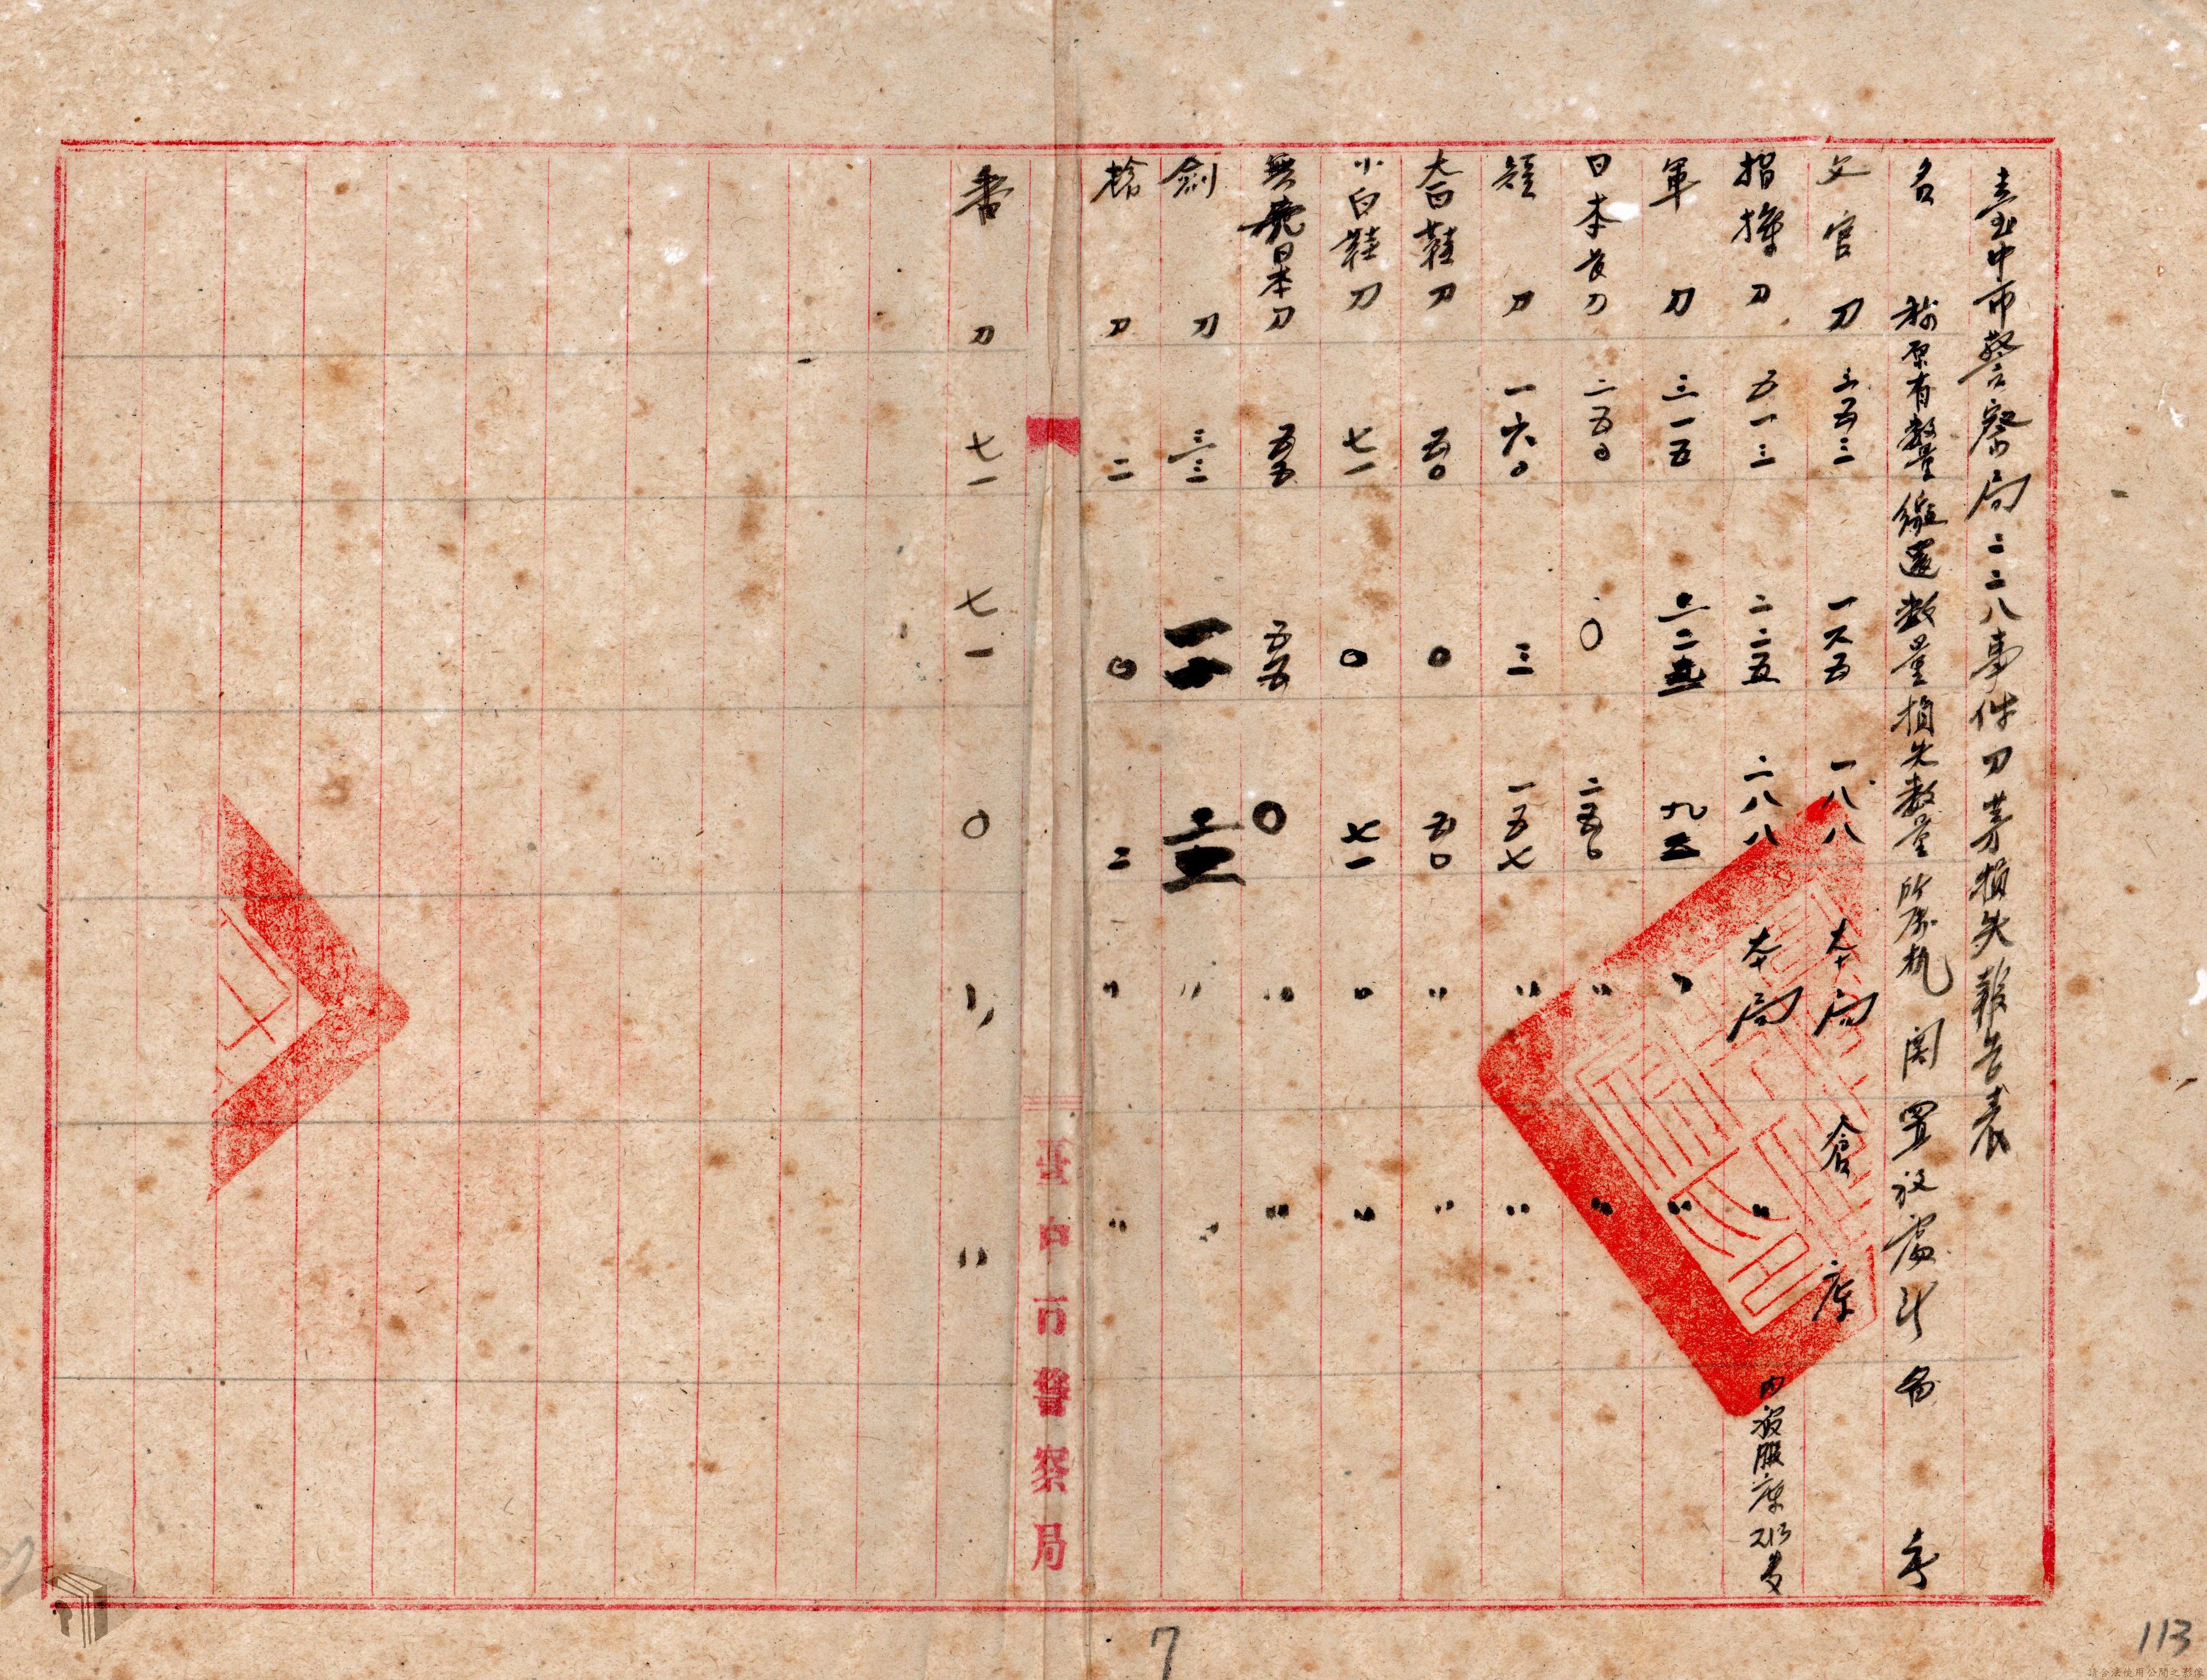 臺中市警察局二二八事件刀劳損失報告表
名稱 原有數量 繳還數量 損失數量 所屬机関 置放處所 备考
文官刀 三五三 一六五 一八八 本局 倉庫
指揮刀 五一三 二二五 二八八 本局 〃 內被服庫213隻
軍刀 三一五 二二 九三 〃 〃
日本長刀 二五〇 〇 二五〇 〃 〃
短刀 一六〇 三 一五七 〃 〃
大白鞋刀 五〇 〇 五〇 〃 〃
小白鞋刀 七一 〇 七一 〃 〃
無號日本刀 五五 五五 〇 〃 〃
劍刀 三三 〃 〃
槍刀 二 〇 二 〃 〃
臺中市警察局
番刀 七一 七一 〇 〃 〃
7
113
請合法使用公開之影像